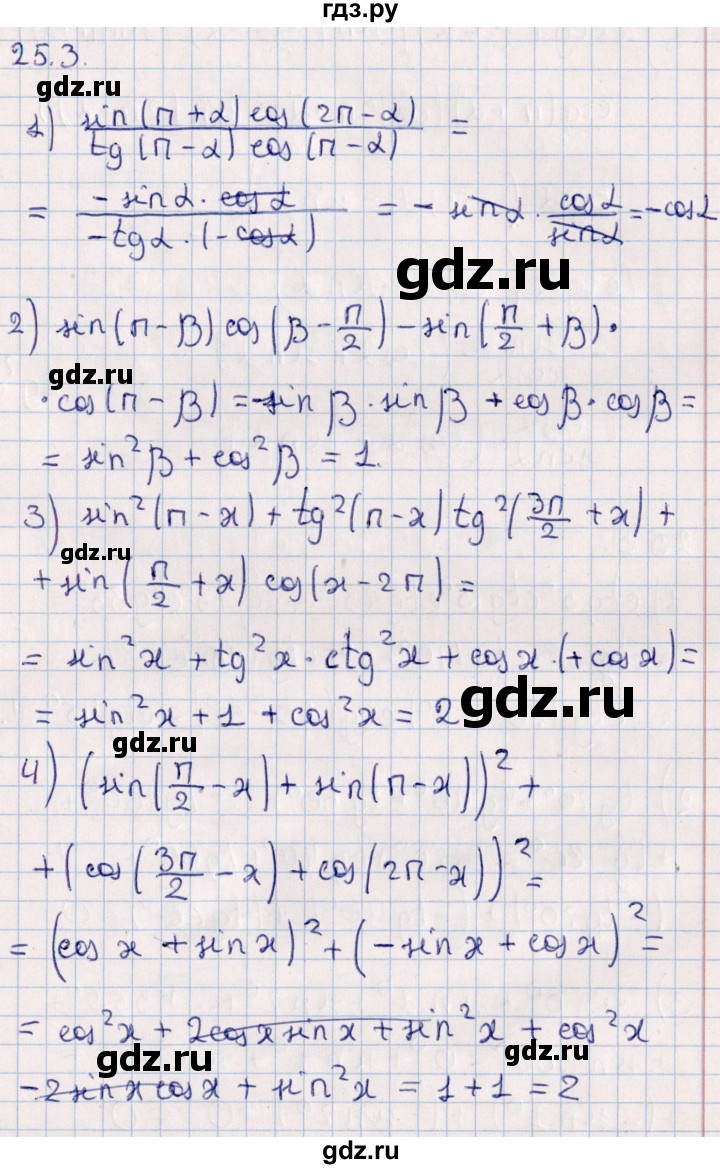 гдз.ру
25.3.
gdz.ru
1) sin(π+α) cos(2π-α) / tg(π-α) cos(π-α) =
= -sinα·cosα / -tgα·(-cosα) = - sinα · cosα/sinα = -cosα
gdz.ru
2) sin(π-β) cos(β - π/2) - sin(π/2 + β) ·
gdz.ru
· cos(π-β) = sin β · sin β + cos β · cos β =
= sin²β + cos²β = 1.
3) sin²(π-x) + tg²(π-x) tg²(3π/2 + x) +
gdz.ru
+ sin(π/2 + x) cos(x-2π) =
= sin²x + tg²x · ctg²x + cosx·(+cosx) =
gdz.ru
= sin²x + 1 + cos²x = 2
gdz.ru
4) (sin(π/2 - x) + sin(π-x))² +
+ (cos(3π/2 - x) + cos(2π-x))² =
= (cos x + sin x)² + (-sin x + cos x)² =
= cos²x + 2cosx sinx + sin²x + cos²x
gdz.ru gdz.ru
- 2sinx cosx + sin²x = 1+1 = 2
gdz.ru